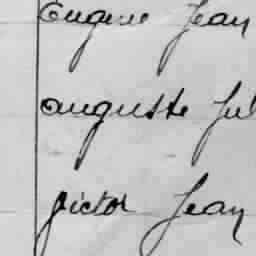 Eugène Jean
auguste Jul
Victor Jean